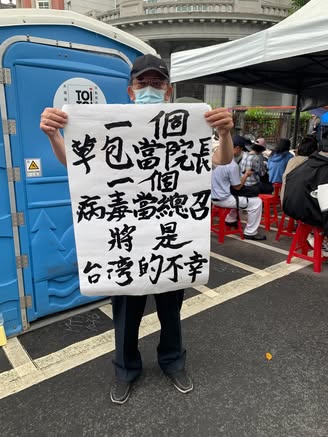 TOI
TOI
一個
草包當院長
一個
病毒當總召
將是
台灣的不幸